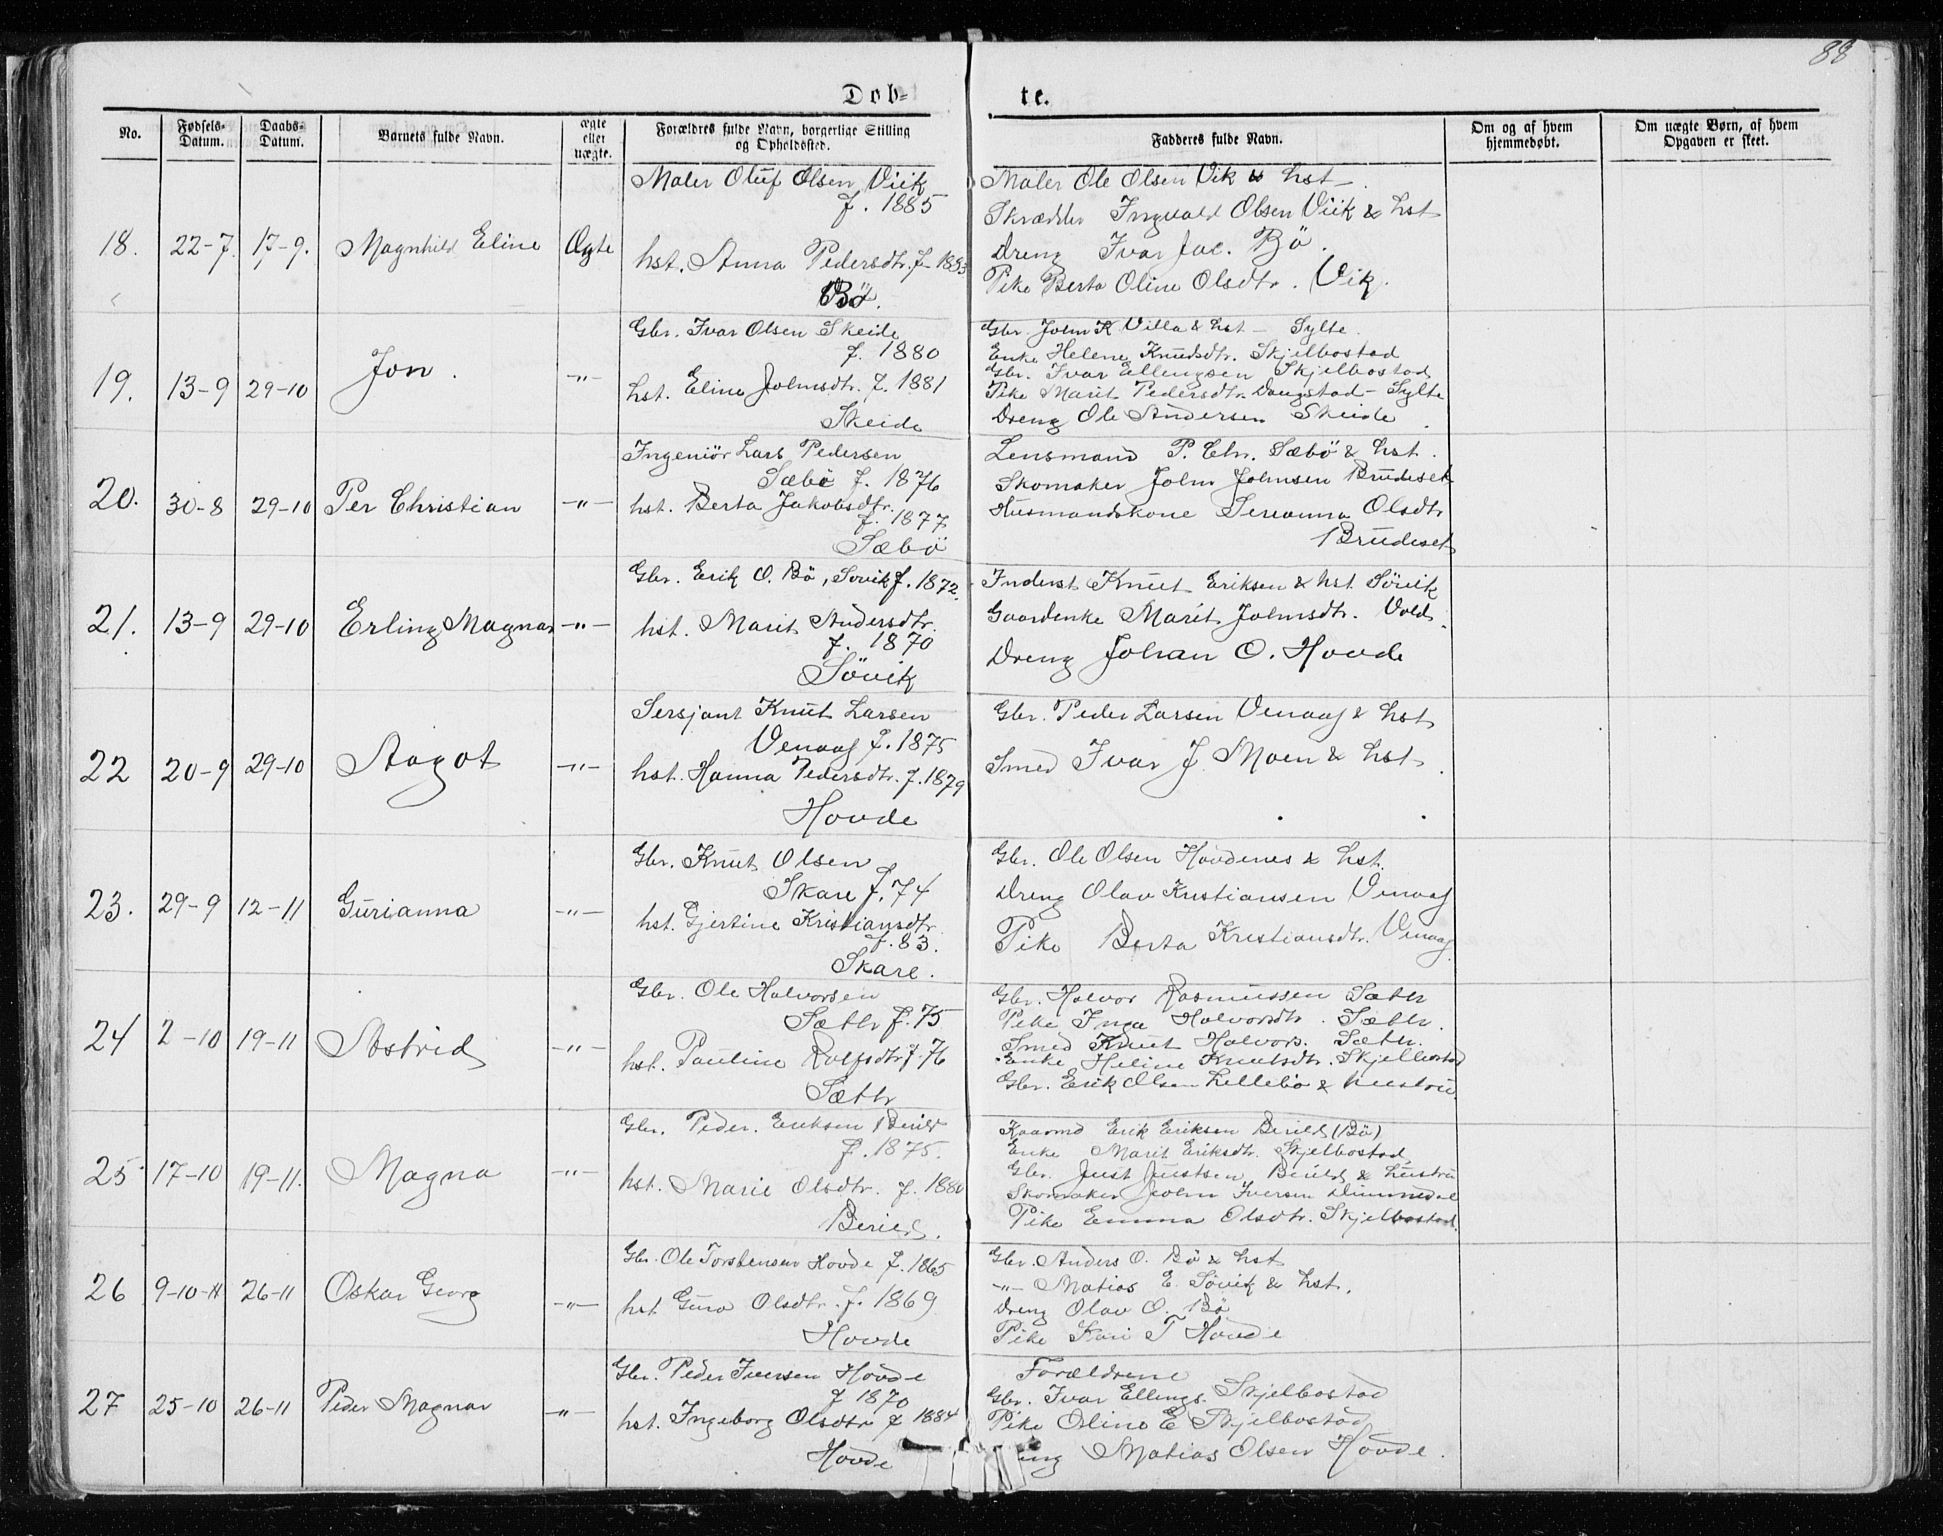 88
Døb-
te.
No.
Fødsels-
Datum.
Daabs-
Datum.
Barnets fulde Navn.
ægte
eller
uægte.
Forældres fulde Navn, borgerlige Stilling
og Opholdssted.
Fadderes fulde Navn.
Om og af hvem
hjemmedøbt.
Om uægte Børn, af hvem
Opgaven er skeet.
18. 22-7 17-9. Magnhild Eline Ægte
Maler Oluf Olsen Viik
f. 1885
hst. Anna Pedersdtr. f. 1883
Bø.
Maler Ole Olsen Vik & hst
Skrædder Ingvald Olsen Viik & hst
Dreng Ivar Jac. Bö.
Pike Berta Oline Olsdtr. Vik.
19. 13-9 29-10 Jon. -"-
Gbr. Ivar Olsen Skeide
f. 1880
hst. Eline Johnsdtr. f. 1881
Skeide
Gbr John K Villa & hst - Sylte.
Enke Helene Knudsdtr. Skjelbostad
Gbr. Ivar Ellengsen Skjelbostad
Pike Marit Pedersdtr. Daugstad - Sylte
Dreng Ole Andersen Skeide
20. 30-8 29-10 Per Christian -"-
Ingeniör Lars Pedersen
Sæbö f. 1876
hst. Berta Jakobsdtr.
f. 1877
Sæbö
Lensmand P. Chr. Sæbö & hst.
Skomaker John Johnsen Brudeset
Husmandskone Serianna Olsdtr
Brudeset
21. 13-9 29-10 Erling Magnar -"-
Gbr. Erik O. Bö, Sövik f. 1872.
hst. Marit Andersdtr.
f. 1870
Sövik
Inderst Knut Eriksen & hst Sövik
Gaardenke Marit Johnsdtr. Vold.
Dreng Johan O. Hovde
22 20-9 29-10 Aagot -"-
Sersjant Knut Larsen
Venaas f. 1875
hst. Hanna Pedersdtr. f. 1879
Hovde
Gbr. Peder Larsen Venaas & hst
Smed Ivar J. Moen & hst.
23. 29-9 12-11 Gurianna -"-
Gbr. Knut Olsen
Skare f. 74
hst. Gjertine Kristiansdtr.
f. 83.
Skare.
Gbr. Ole Olsen Hovdenes & hst.
Dreng Olav Kristiansen Venaas
Pike Berta Kristiansdtr. Venaas
24 2-10 19-11 Astrid -"-
Gbr. Ole Halvorsen
Sæthr f. 75
hst. Pauline Rolfsdtr f. 76
Sæthr
Gbr. Halvor Rasmussen Sæthr
Pike Inga Halvorsdtr. Sæthr.
Smed Knut Halvors. Sæthr.
Enke Heline Knutsdtr. Skjelbostad
Gbr. Erik Olsen Lillebö & hustru.
25 17-10 19-11. Magna -"-
Gbr. Peder. Eriksen Berild
f. 1875.
hst. Marie Olsdtr. f. 1880
Berild.
Kaarmd Erik Eriksen Berild (Bö)
Enke Marit Eriksdtr. Skjelbostad
Gbr. Just Justsen Berild & hustru
Skomaker John Iversen Dimmedal
Pike Emma Olsdtr. Skjelbostad.
26 9-10-11 26-11 Oskar Georg -"-
Gbr. Ole Torstensen Hovde f. 1865
hst Guro Olsdtr. f. 1869
Hovde
Gbr. Anders O. Bö & hst
-"- Matias E. Sövik & hst.
Dreng Olav O. Bö
Pike Kari T Hovde
27 25-10 26-11 Peder Magnar -"-
Gbr. Peder Iversen Hovde
f 1870
hst. Ingeborg Olsdtr f 1884
Hovde
Forældrene
Gbr. Ivar Ellings. Skjelbostad
Pike Oline E Skjelbostad
Matias Olsen Hovde.